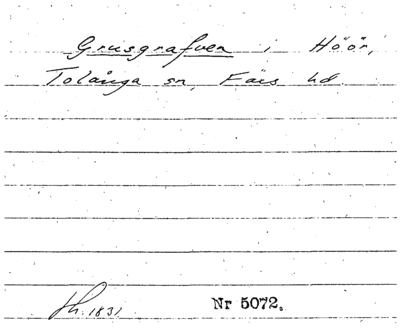 Grusgrafven i Höör,
Tolånga sn, Färs hd.
Sk. 1831 Nr 5072.